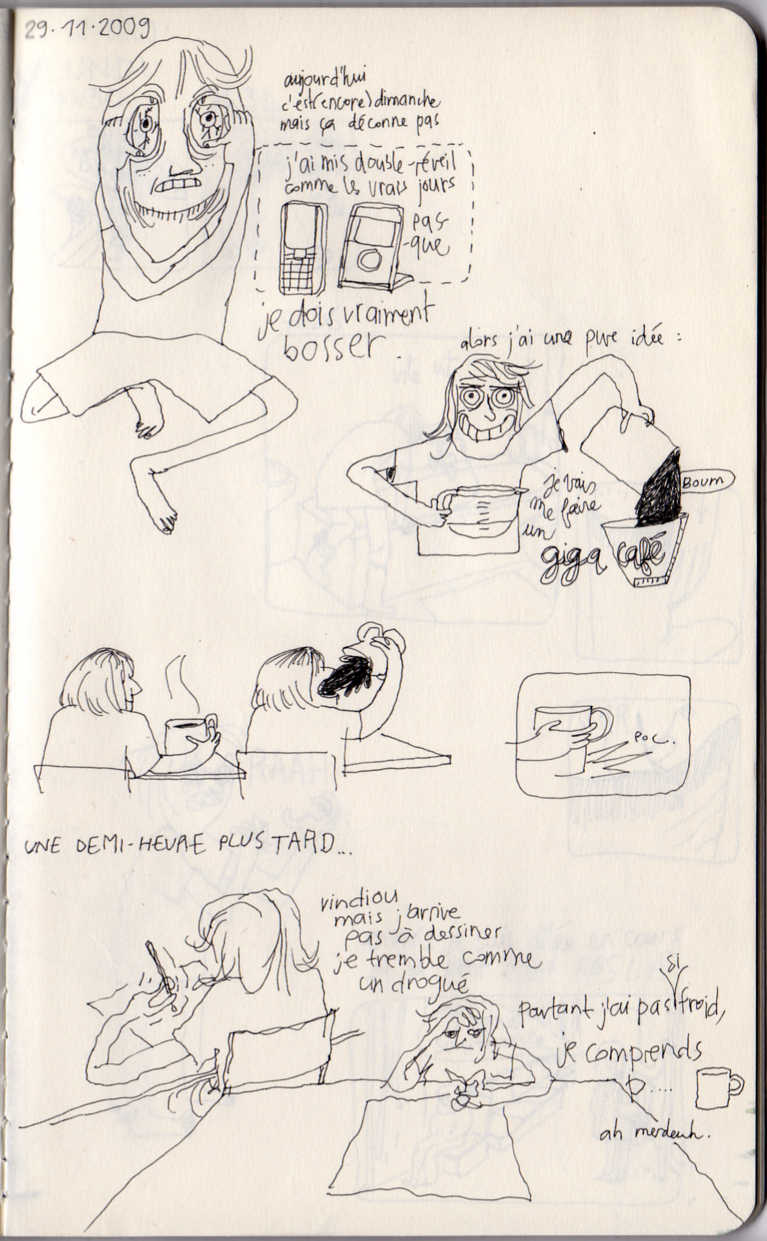 29.11.2009
aujourd'hui
c'est (encore) dimanche
mais ça déconne pas
j'ai mis double-réveil
comme les vrais jours
pas-
-que
je dois vraiment
bosser.
alors j'ai une pure idée :
Boum
je vais
me faire
un
giga café
POC.
UNE DEMI-HEURE PLUS TARD...
vindiou
mais j'arrive
pas à dessiner
je tremble comme
un drogué
si
pourtant j'ai pas froid,
je comprends
p....
ah merdeuh.